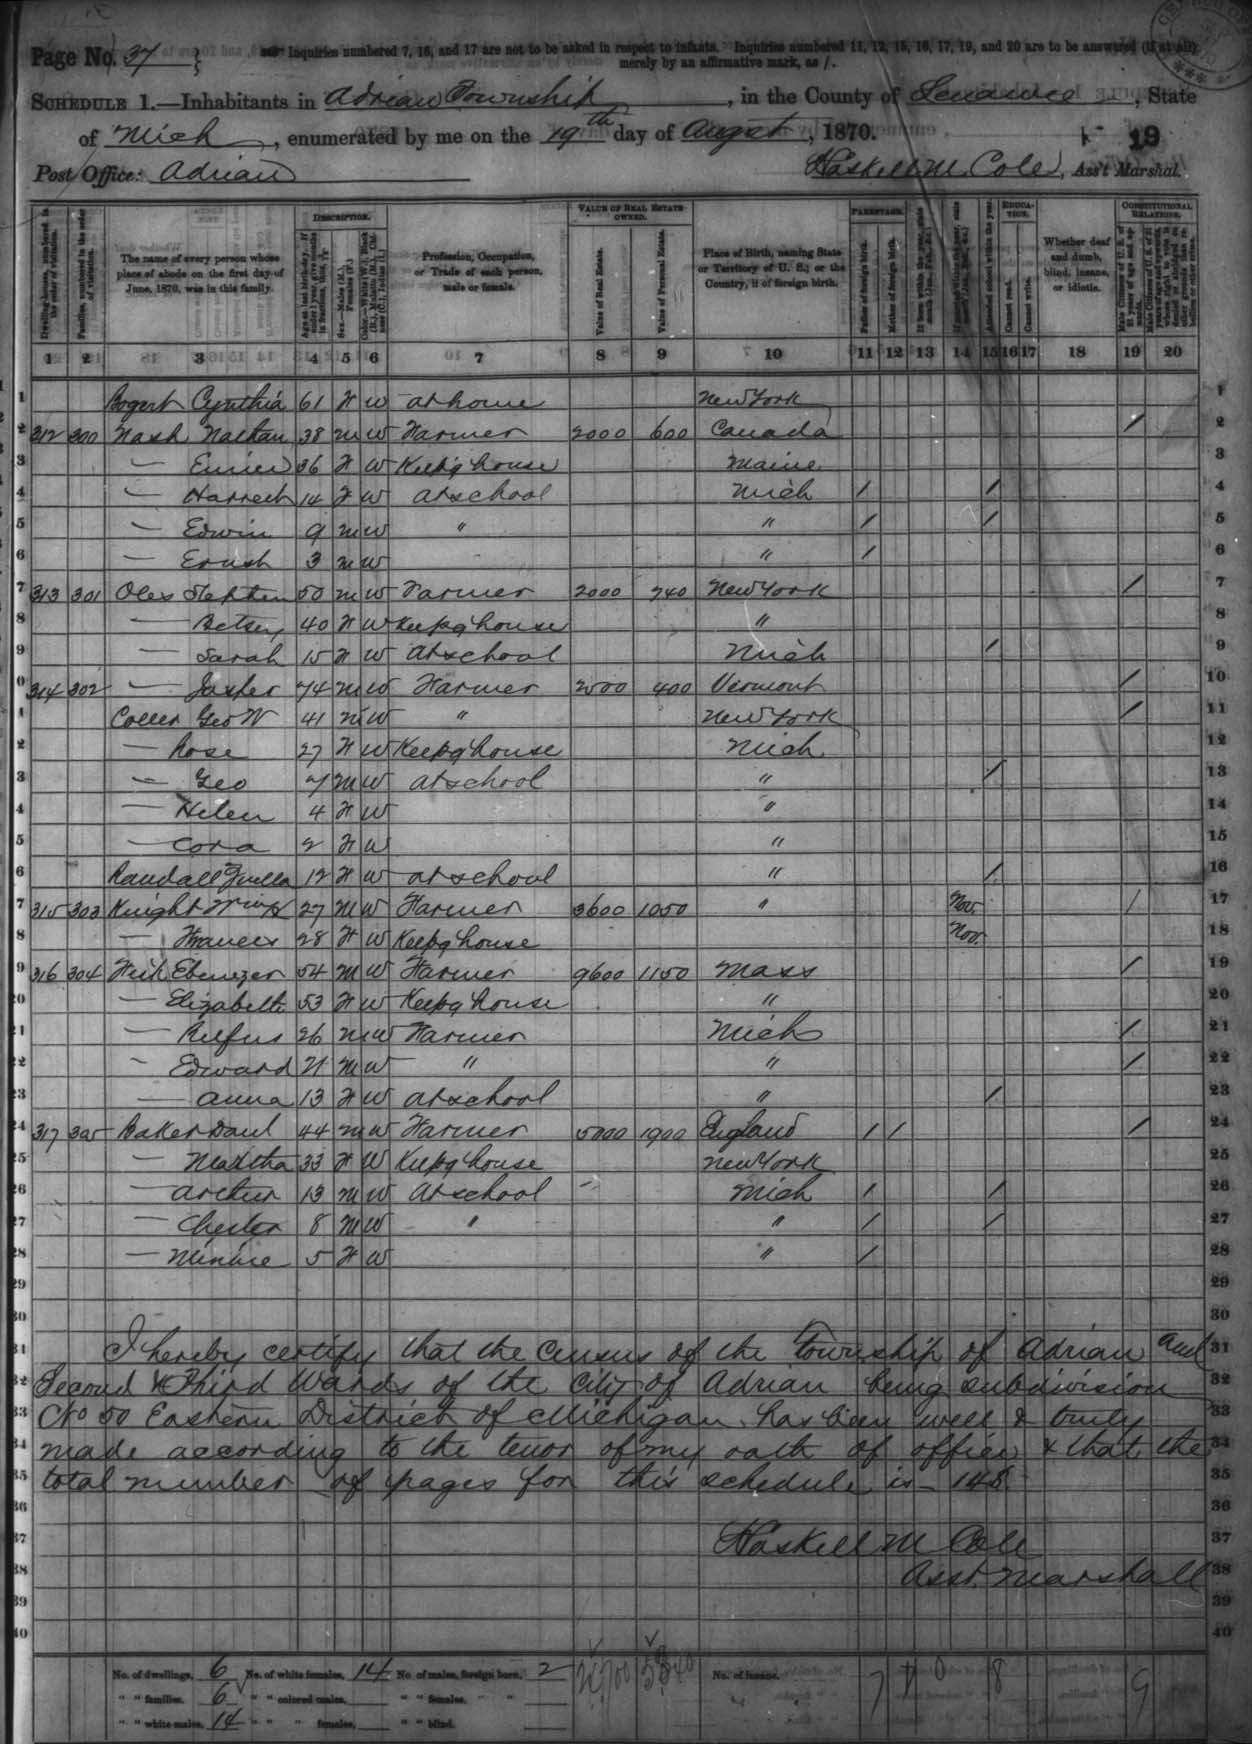 Page No. 37
Inquiries numbered 7, 16, and 17 are not to be asked in respect to infants. Inquiries numbered 11, 12, 15, 16, 17, 19, and 20 are to be answered (if at all)
merely by an affirmative mark, as /.
SCHEDULE 1.—Inhabitants in Adrian Township, in the County of Lenawee, State
of Mich, enumerated by me on the 19th day of August, 1870.
19
Post Office: Adrian
Haskell M. Cole, Ass't Marshal.
DESCRIPTION. VALUE OF REAL ESTATE OWNED. PARENTAGE. EDUCATION. CONSTITUTIONAL RELATIONS.
Dwelling-houses, numbered in the order of visitation.
Families, numbered in the order of visitation.
The name of every person whose place of abode on the first day of June, 1870, was in this family.
Profession, Occupation, or Trade of each person, male or female.
Value of Real Estate.
Value of Personal Estate.
Place of Birth, naming State or Territory of U. S.; or the Country, if of foreign birth.
Father of foreign birth.
Mother of foreign birth.
Attended school within the year.
Cannot read.
Cannot write.
Whether deaf and dumb, blind, insane, or idiotic.
1 2 3 4 5 6 7 8 9 10 11 12 13 14 15 16 17 18 19 20
1 Bogert Cynthia 61 F W at home New York 1
2 312 300 Nash Nathan 38 M W Farmer 2000 600 Canada / 2
3 — 36 F W Keep'g house Maine 3
4 — 14 F W At school Mich / / 4
5 — Edwin 9 M W " " / / 5
6 — 3 M W " / 6
7 313 301 Oles Stephen 50 M W Farmer 2000 740 New York / 7
8 — Betsey 40 F W Keep'g house " 8
9 — Sarah 15 F W At school Mich / 9
10 314 302 — Jasper 74 M W Farmer 2500 400 Vermont / 10
11 Geo W 41 M W " New York / 11
12 — Rose 27 F W Keep'g house Mich 12
13 — Geo 7 M W At school " / 13
14 — Helen 4 F W " 14
15 — Cora 2 F W " 15
16 Randall 12 F W at school " / 16
17 315 303 Knight 27 M W Farmer 3600 1050 " Nov. / 17
18 — Frances 28 F W Keep'g house Nov. 18
19 316 304 Ebenezer 54 M W Farmer 9600 1150 Mass / 19
20 — Elizabeth 53 F W Keep'g house " 20
21 — Rufus 26 M W Farmer Mich / 21
22 — Edward 21 M W " " / 22
23 — Anna 13 F W At school " / 23
24 317 305 Baker Danl 44 M W Farmer 5000 1900 England / / / 24
25 — Martha 33 F W Keep'g house New York 25
26 — Arthur 13 M W At school Mich / / 26
27 — Chester 8 M W " " / / 27
28 — Minnie 5 F W " / 28
29 29
30 30
31 I hereby certify that the Census of the Township of Adrian and 31
32 Second & Third Wards of the City of Adrian being subdivision 32
33 No 50 Eastern District of Michigan, has been well & truly 33
34 made according to the tenor of my oath of office & that the 34
35 total number of pages for this schedule is — 148. 35
36 36
37 Haskell M Cole 37
38 Asst. Marshall 38
39 39
40 40
No. of dwellings, 6 No. of white females, 14 No. of males, foreign born, 2 No. of insane, 7 4 0 8 9
" " families, 6 " " colored males, " " females, " "
" " white males, 14 " " " females, " " blind,